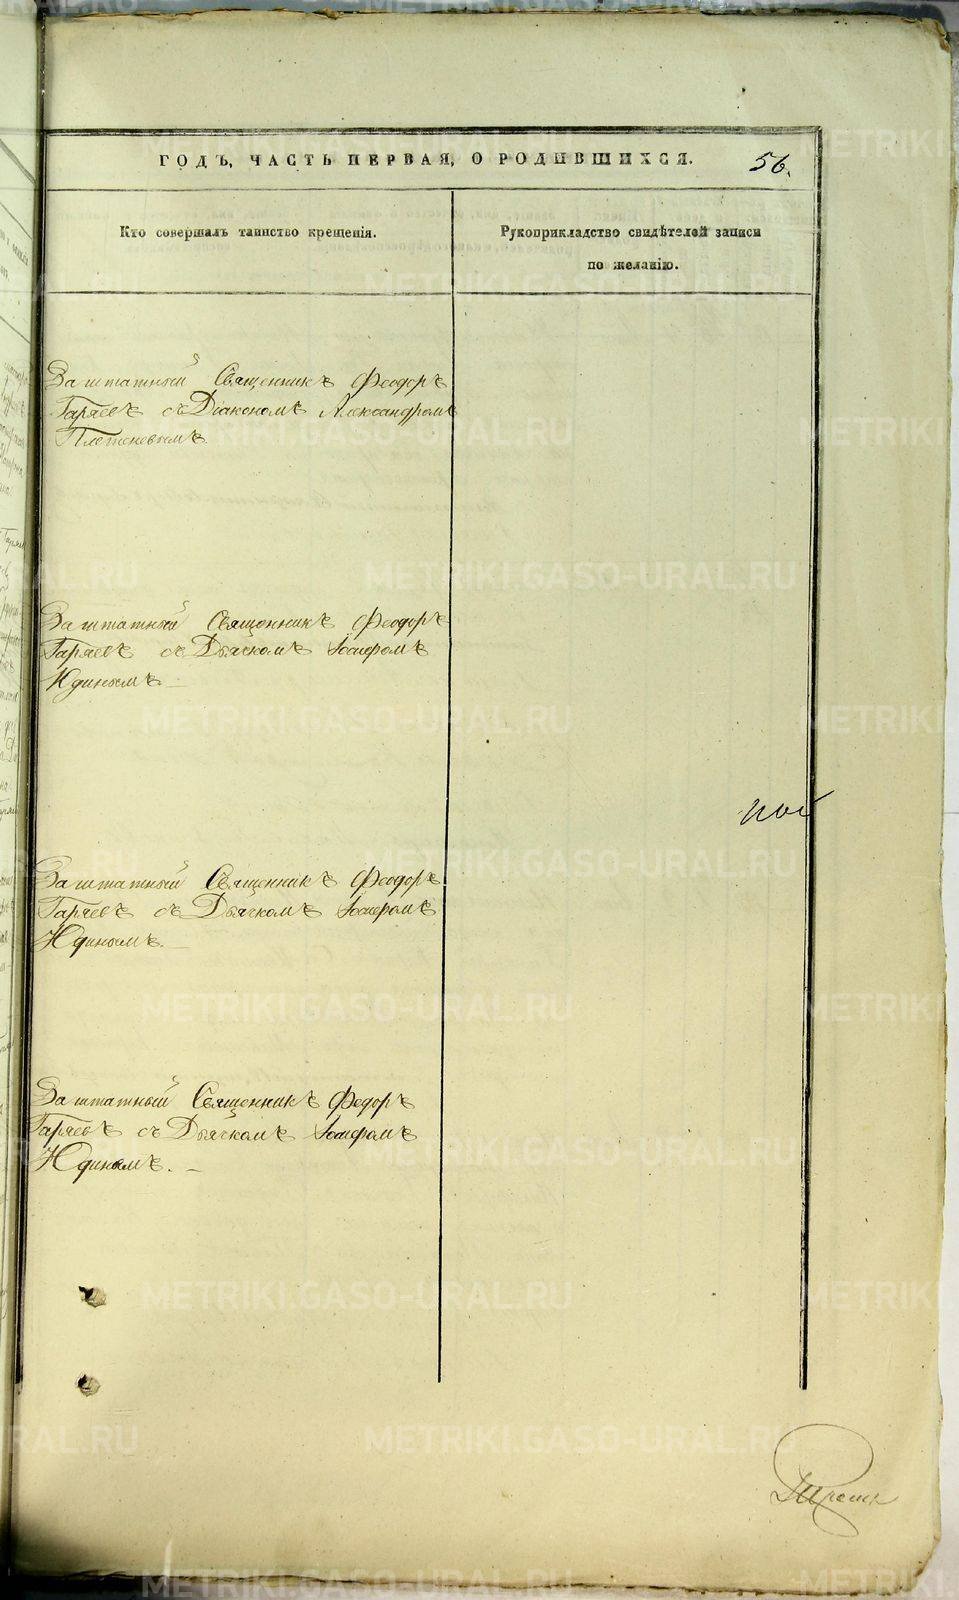 ГОДЪ, ЧАСТЬ ПЕРВАЯ, О РОДИВШИХСЯ.
56.
Кто совершалъ таинство крещенія.
Рукоприкладство свидѣтелей записи
по желанію.
Заштатный Священникъ Феодоръ
Гаряевъ съ Діакономъ Александромъ
Плетеневымъ
Заштатный Священникъ Феодоръ
Гаряевъ съ Дьячкомъ Іосифомъ
Юдинымъ.
ной
Заштатный Священникъ Феодоръ
Гаряевъ съ Дьячкомъ Іосифомъ
Юдинымъ.
Заштатный Священникъ Федоръ
Гаряевъ съ Дьячкомъ Іосифомъ
Юдинымъ.
METRIKI.GASO-URAL.RU